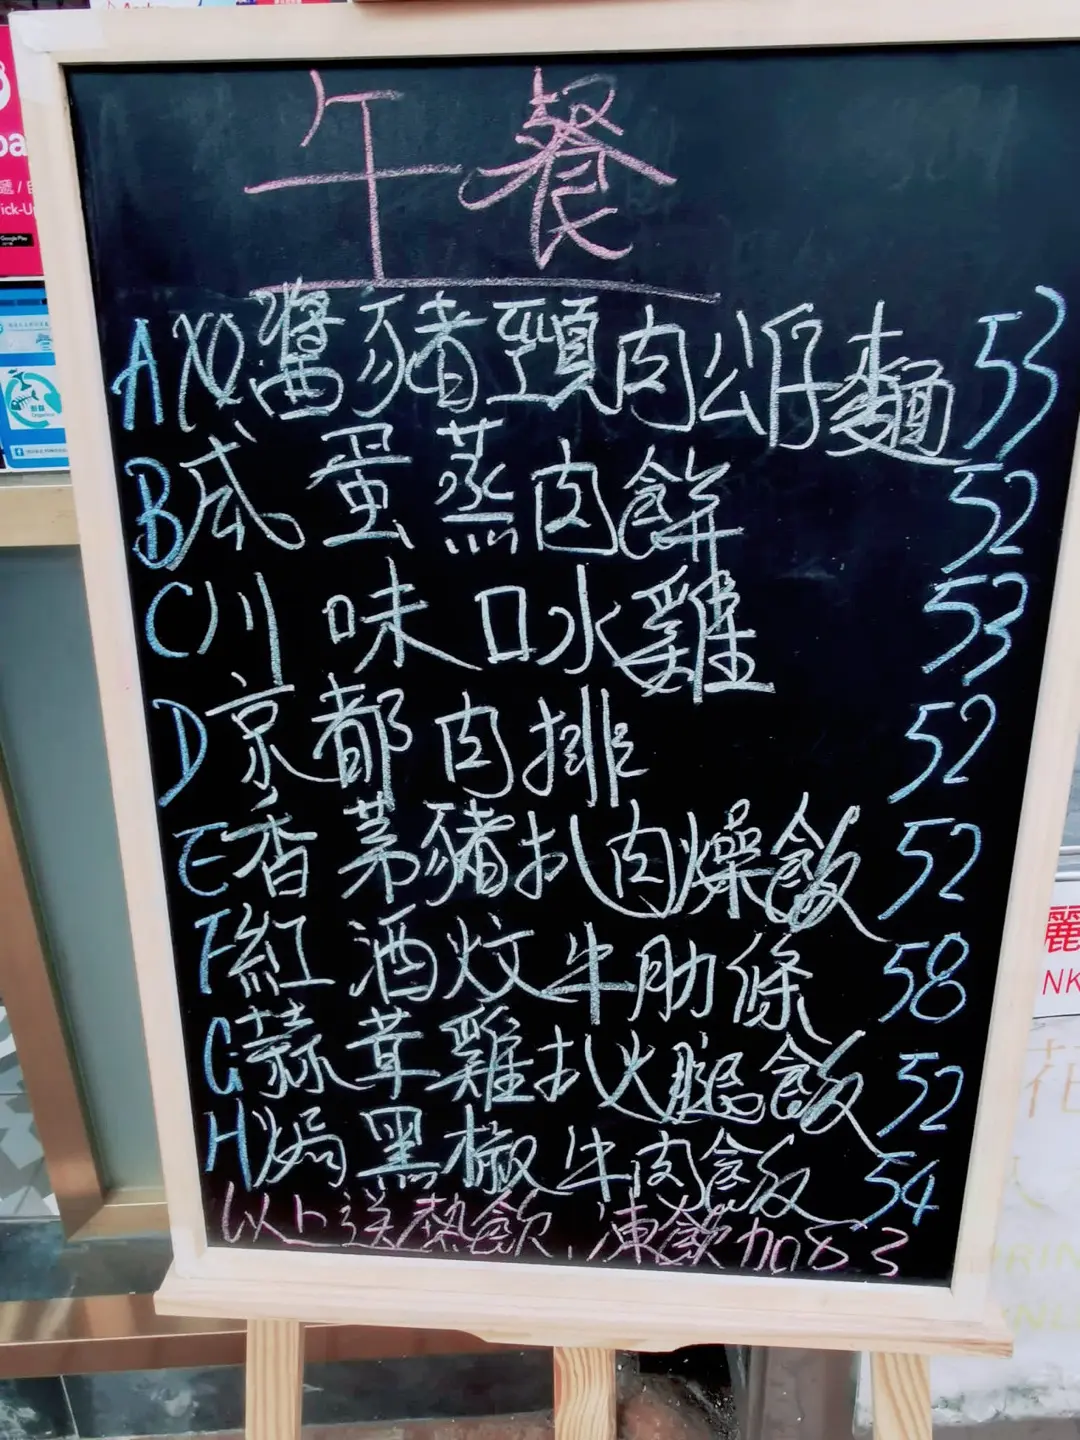 午餐
A XO醬豬頸肉公仔麵 53
B 咸蛋蒸肉餅 52
C 川味口水雞 53
D 京都肉排 52
E 香茅豬扒肉燥飯 52
F 紅酒炆牛肋條 58
G 蒜茸雞扒火腿飯 52
H 焗黑椒牛肉飯 54
以上送熱飲,凍飲加$3
ick-U
Google Play
麗
NK